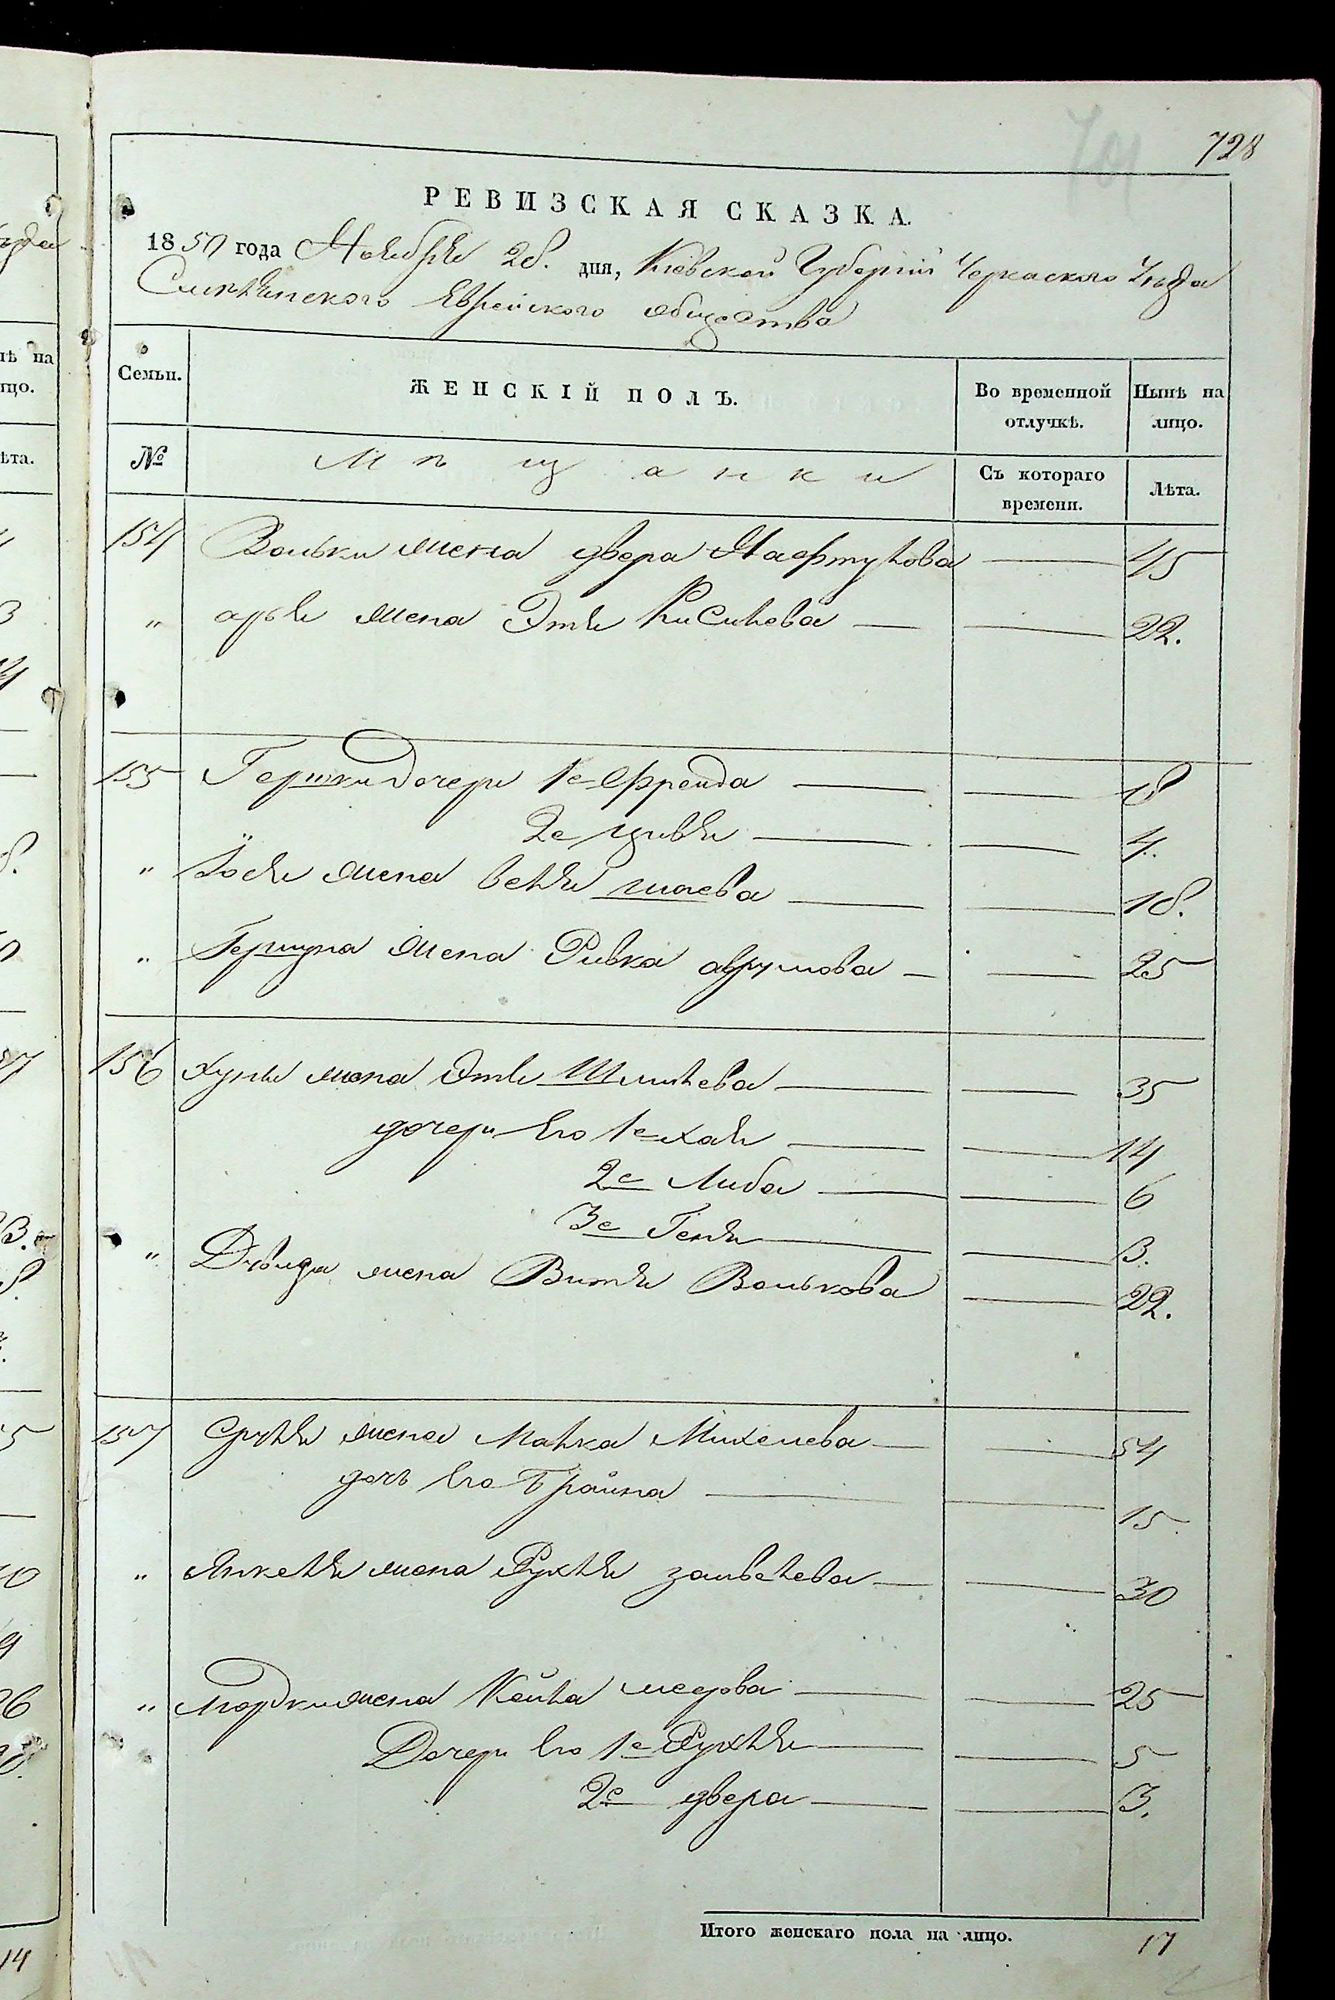 728
701
РЕВИЗСКАЯ СКАЗКА.
1850 года Ноября 28. дня, Киевской Губернии Черкаского Уезда
Смелянского Еврейского общества
Семьи. ЖЕНСКІЙ ПОЛЪ. Во временной отлучкѣ. Нынѣ на лицо.
№ Мѣщанки Съ котораго времени. Лѣта.
154 Вольки жена двера Нафтулова 45
" арья жена Этя Кисилева 22.
155 Гершки дочери 1е Фрейда 18
2е цивя 4.
" Іося жена веля шаева 18.
" Гершуна жена Ривка аврумова 25
156 Хуня жена Этя Шмилева 35
дочери Его 1е хая 14
2е Либа 6
3е Геня 3.
" Давида жена Витя Волькова 22.
157 Сруля жена Малка Михелева 54
дочь Его Брайна 15
" Янкеля жена Рухля занвелева 30
" Мордки жена Кейла медова 25
Дочери Его 1е Рухля 5
2е двера 3.
Итого женскаго пола на лицо. 17
14